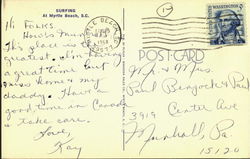 SURFING
At Myrtle Beach, S.C.
Hi Folks
How's Muni
This place is the
greatest. Am having
a great time but I
miss home & my
daddy. Have a
good time in Canada
& take care.
Love,
Kay
1968
POST CARD
Mr. & Mrs.
Paul
3919 Center Ave
Munhall, Pa
15120